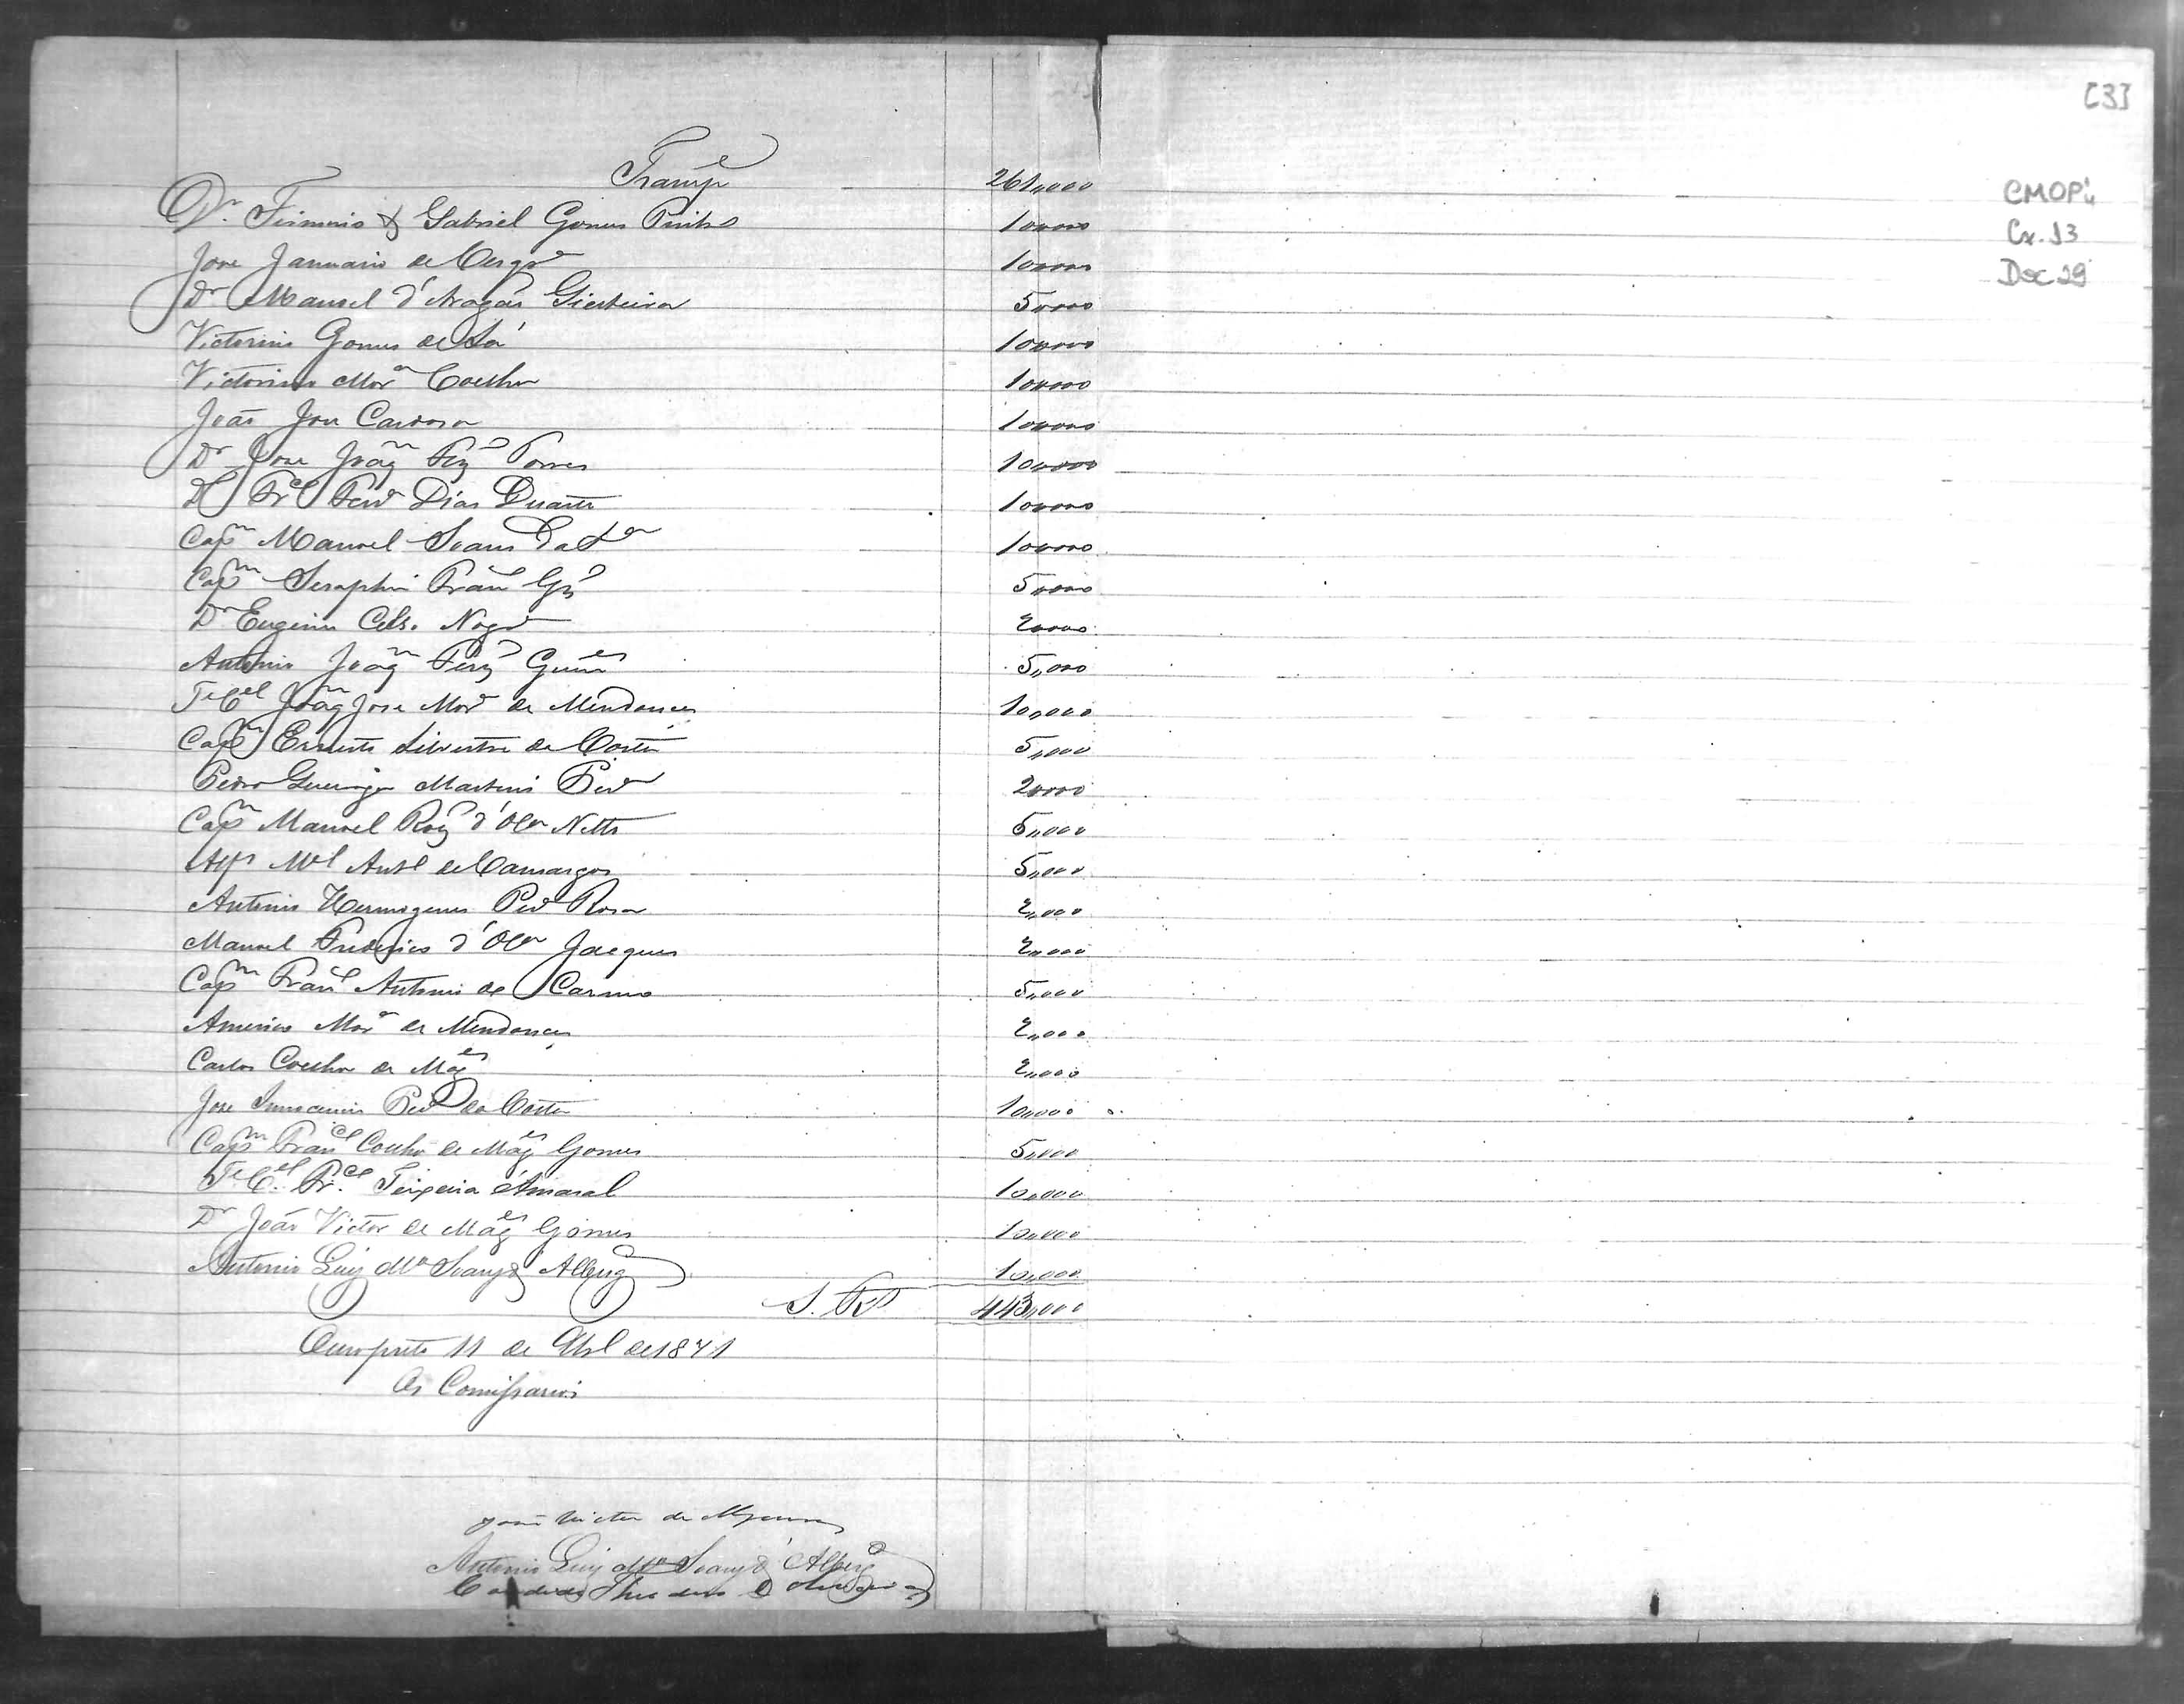 [3]
CMOP
Cx. 13
Doc 29
Transpe 261,,000
Dr. Firmino & Gabriel Gomes Pinto 10,,000
Jose Januario de Cerqra 10,,000
Dr Manoel d'Aragão Giesteira 5,,000
Victorino Gomes de Sá 10,,000
Victorino Mora Coelho 10,,000
João Jose Cardoso 10,,000
Dr Jose Joaqm Ferz Torres 10,,000
Dr Frco Perª Dias Duarte 10,,000
Capm Manoel Soares da Sa 10,,000
Capm Seraphim Franco Glz 5,,000
Dr Eugenio Celso Nogra 2,,000
Antonio Joaqm Ferz Guimes 5,,000
Te Cel Joaqm Jose Mora de Mendonça 10,,000
Capm Ernesto Silvestre da Costa 5,,000
Pedro Martins Pera 2,,000
Capm Manoel Roiz d'Olra Netto 5,,000
Alfs Mel Anto de Camargos 5,,000
Antonio Hermogenes Pera Rosa 2,,000
Manoel Frederico d'Olra Jacques 2,,000
Capm Franco Antonio de Carmo 5,,000
Americo Mora de Mendonça 2,,000
Carlos Coelho de Mages 2,,000
Jose Innocencio Pera da Costa 10,,000
Capm Franco Coelho de Mages Gomes 5,,000
Te Cel Frco Teixeira Amaral 10,,000
Dr João Victor de Mages Gomes 10,,000
Antonio Luiz Ma Soares d'Albuqe 10,,000
S. R. 443,,000
Ouropreto 11 de Abl de 1871
Os Comissarios
João Victor de MGomes
Antonio Luiz Ma Soares d'Albuqe
Candido Theodoro d'Oliveira